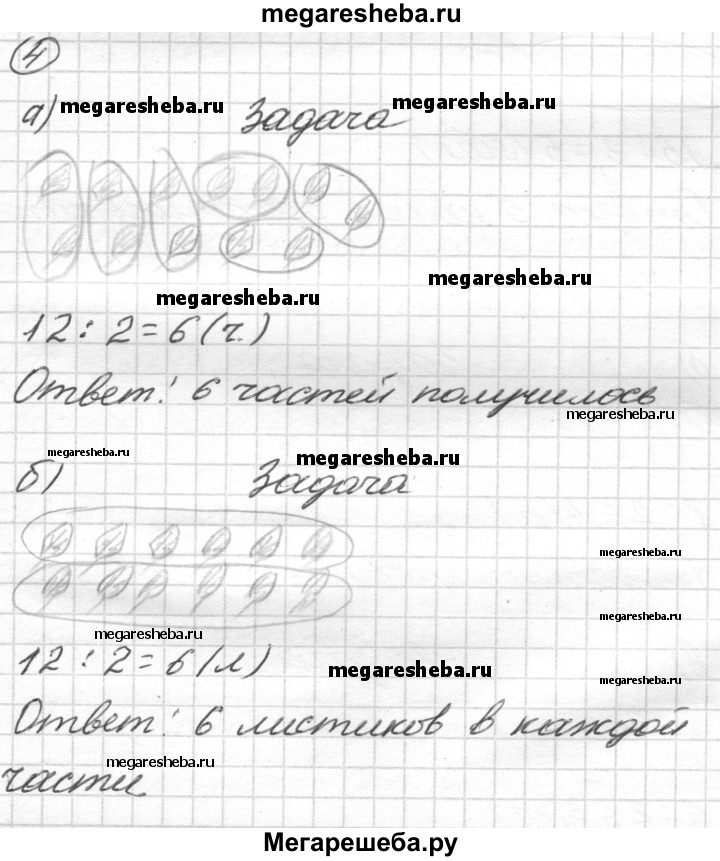 megaresheba.ru
4
а) megaresheba.ru Задача megaresheba.ru
megaresheba.ru
megaresheba.ru
12 : 2 = 6 (ч.)
Ответ: 6 частей получилось
megaresheba.ru
megaresheba.ru
б) Задача megaresheba.ru
megaresheba.ru
megaresheba.ru
megaresheba.ru
12 : 2 = 6 (л)
megaresheba.ru
megaresheba.ru
Ответ: 6 листиков в каждой
части
megaresheba.ru
Мегарешеба.ру